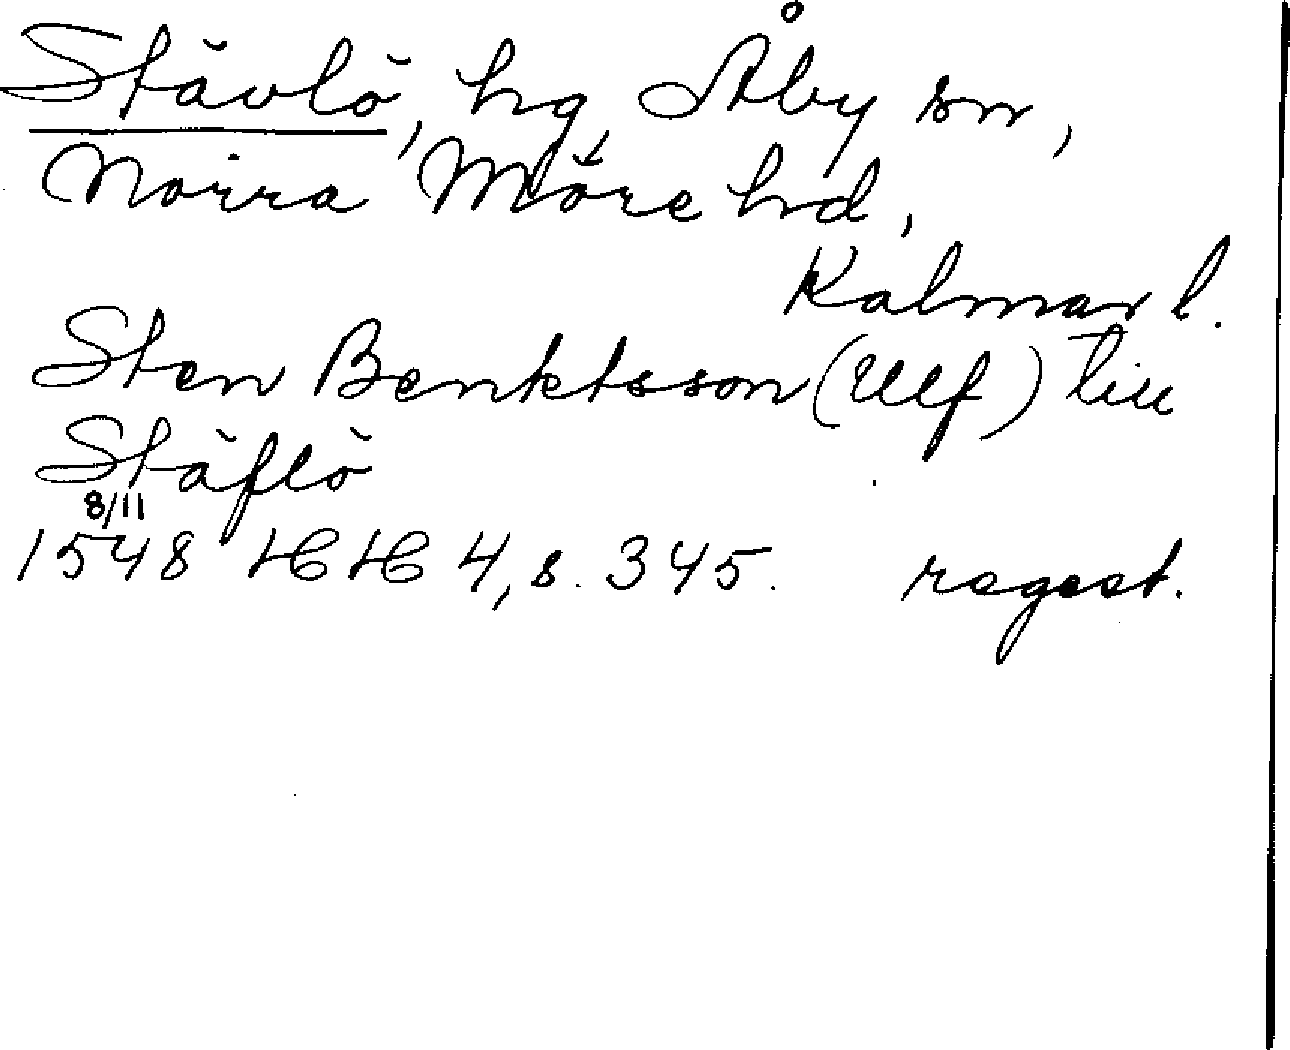 Stävlö, hg, Åby sn,
Norra Möre hd,
Kalmar l.
Sten Benktsson (Ulf) till
Stäflö
8/11
1548 HH 4, s. 345. regest.